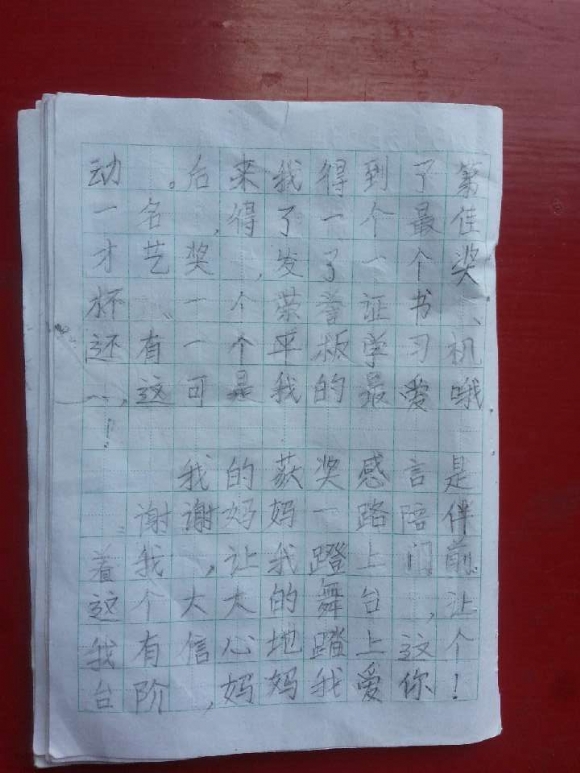 动。后来我得到了第
一名,得了一个最佳
才艺奖,发了一个奖
杯、一个荣誉证书、
还有一个平板学习机
……,这可是我的最爱哦
!
我的获奖感言是
:谢谢妈妈一路陪伴
着我,让我蹬上门前
这个大大的舞台,让
我有信心地踏上这个
台阶,妈妈我爱你!